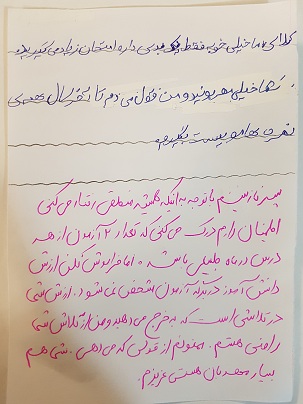 کلاس شما خیلی خوبه فقط یک بدی داره امتحان زیاد می گیرید.
شما خیلی مهربونید و من قول می دم تا آخر سال همه ی
نمره هامو بیست بگیرم.
پسر نازنینم با توجه به اینکه همیشه منطقی رفتار می کنی
اطمینان دارم درک می کنی که تعداد ۲ آزمون از هر
درس در ماه طبیعی باشه. اما فراموش نکن ارزش
دانش آموز در برگه آزمون مشخص نمی شود. ارزش شما
در تلاشی است که به خرج می دهید و من از تلاش شما
راضی هستم. ممنونم از قولی که می دهی. شما هم
بسیار مهربان هستی عزیزم.